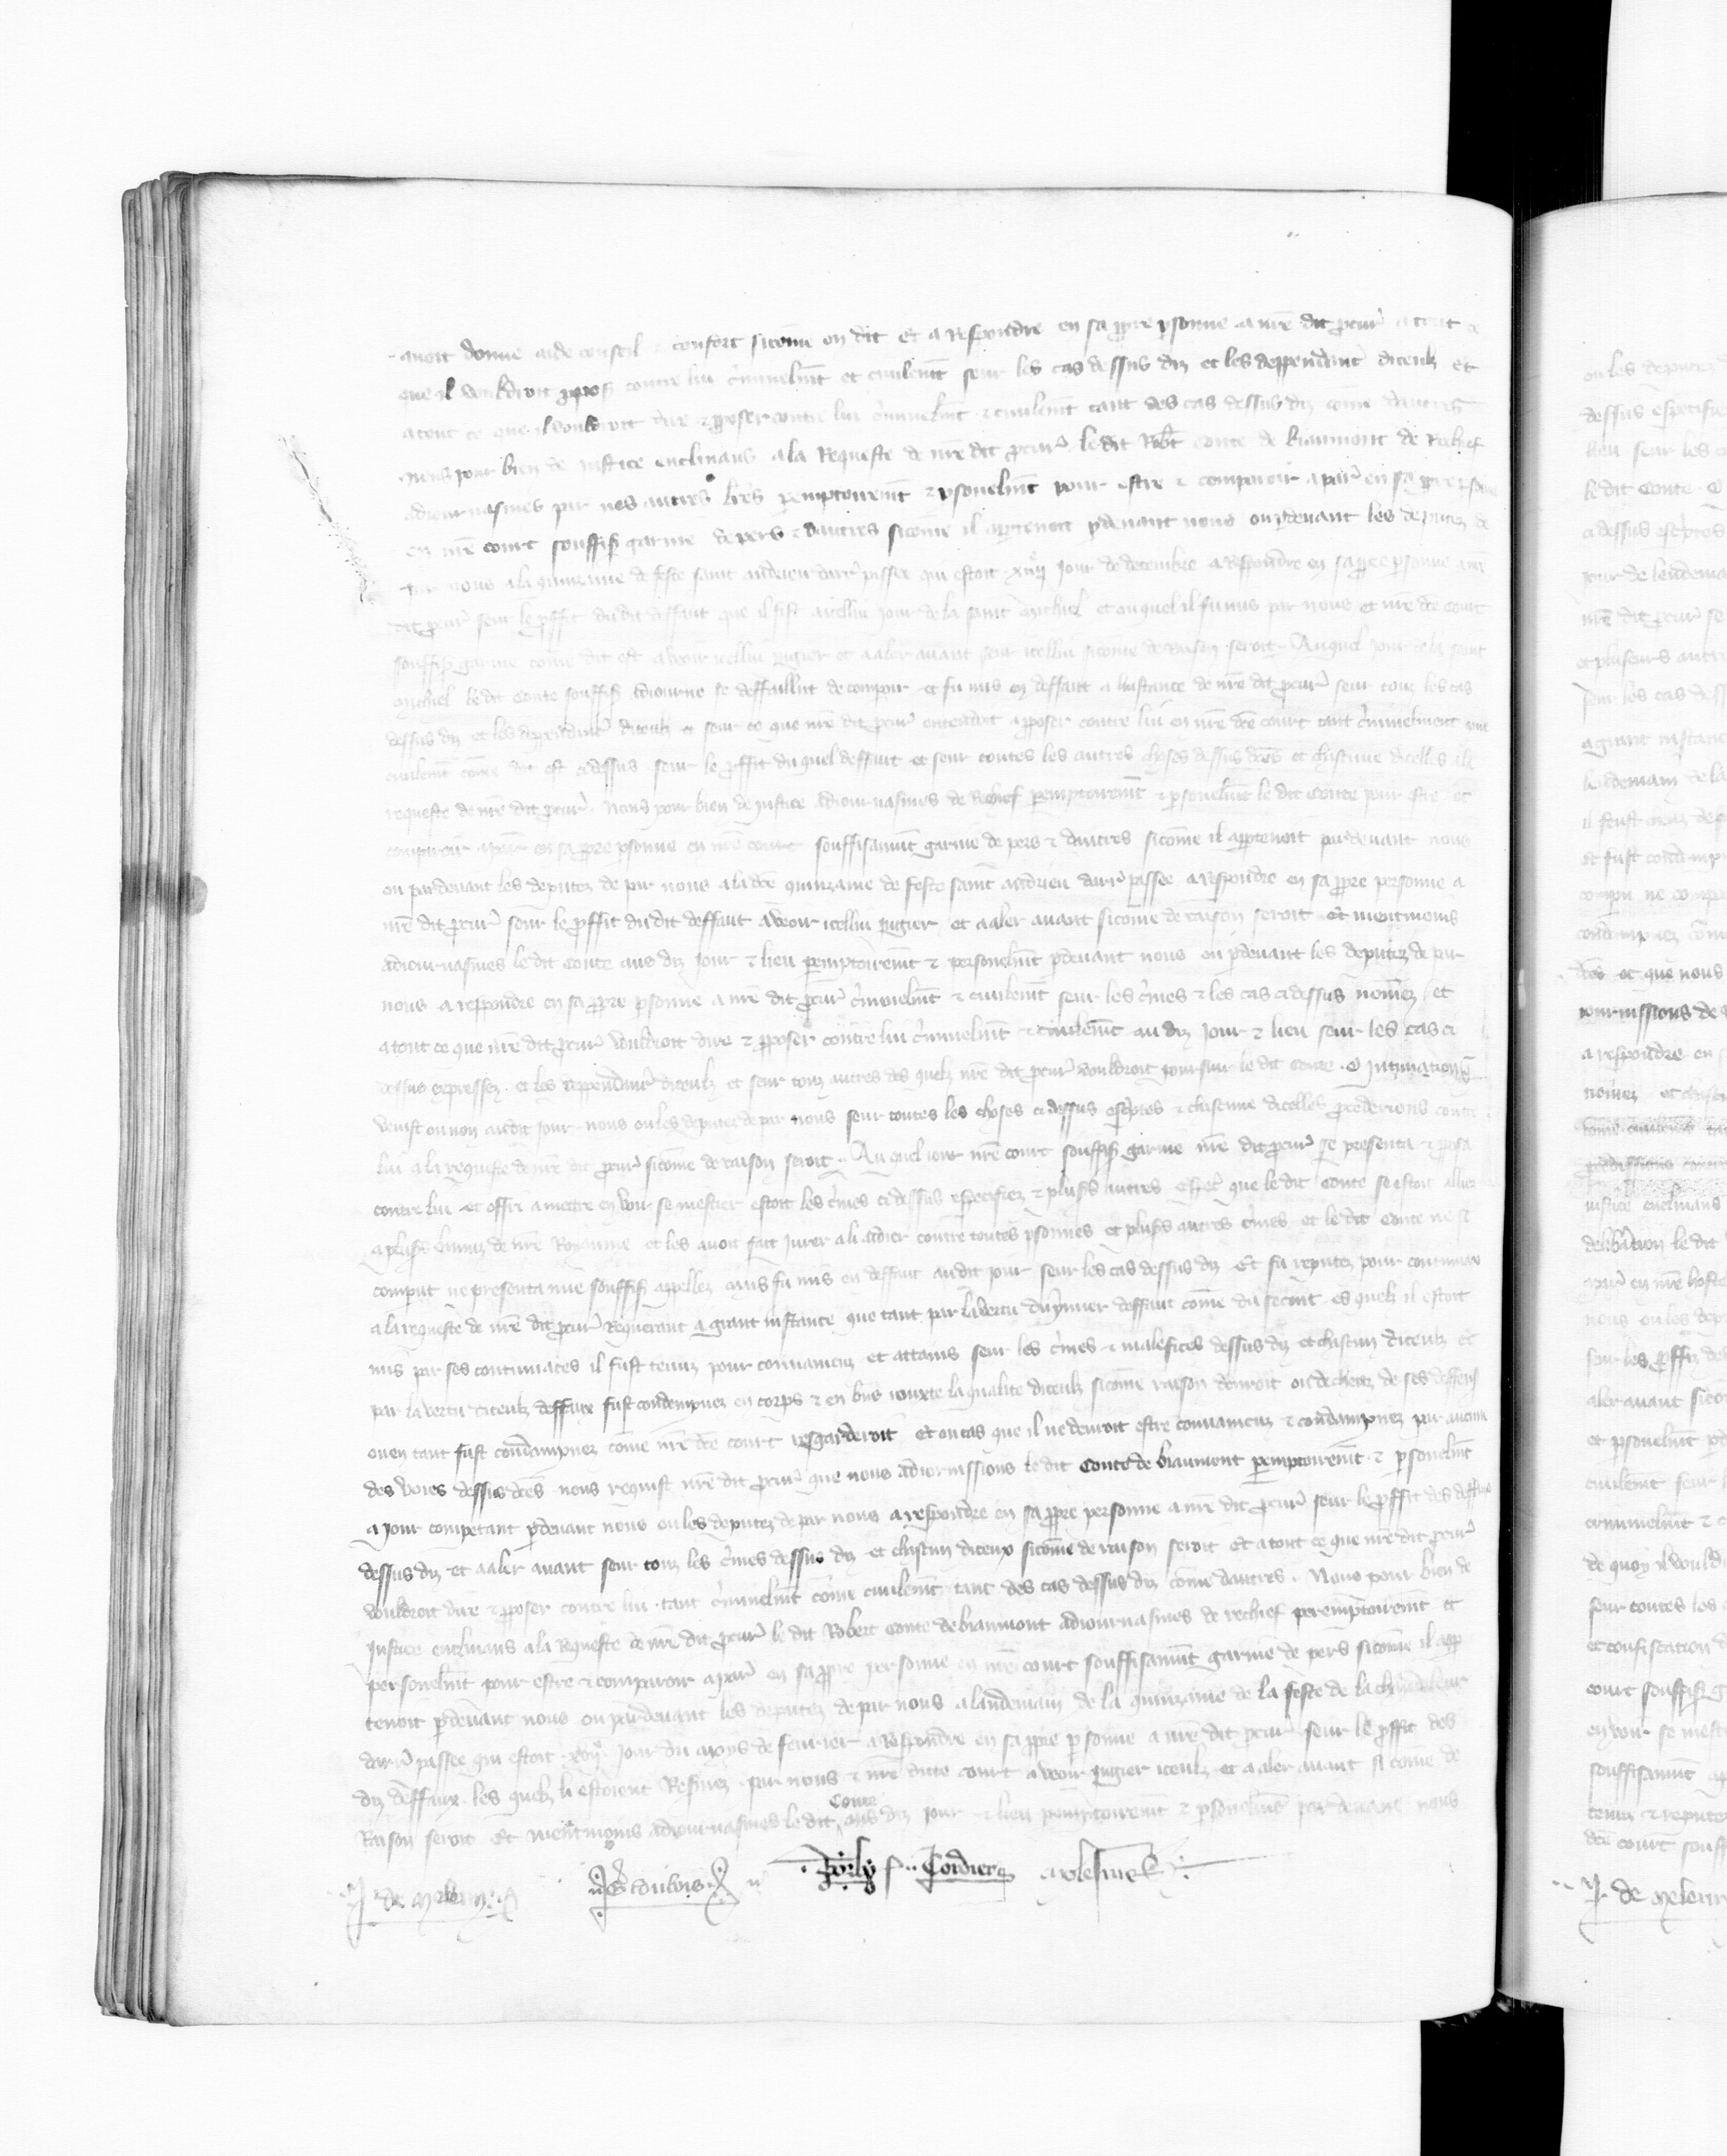 avoit donne aide conseil & confort sicome on dit et a respondre en sa ppre psonne a nre dit pcur a tout ce
que il vouldroit pposer contre lui criminelmt et civilemt seur les cas dessus diz et les deppendant diceulx et
a tout ce que il vouldroit dire & pposer contre lui criminelmt & civilemt tant des cas dessus diz come dautres
Nous pour bien de justice enclinans a la requeste de nre dit pcur ledit Robt conte de biaumont de rechief
adiournasmes par nos autres lres pemptoiremt & psonelmt pour estre & comparoir a paris en sa ppre psonne
en nre court souffis garnie de pers & dautres sicome il aptenoit pdevant nous ou pdevant les deputez de
par nous a la quinzaine de feste saint andrieu darr passee qui estoit xiiij jour de decembre a respondre en sa ppre personne a nre
dit pcur seur le pffit du dit deffaut que il fist a icellui jour de la saint Michiel et ouquel il fu mis par nous et nre dce court
souffis garnie come dit est a veoir icellui jugier et a aler avant seur icellui sicome de raison seroit. Auquel jour de la saint
Michiel le dit Conte souffis adiourne se deffailli de compoir et fu mis en deffaut a linstance de nre dit pcur seur touz les cas
dessus diz et les deppendant diceulx et seur ce que nre dit pcur entendoit apposer contre lui en nre dce court tant criminelment que
civilemt come dit est ci dessus seur le pffit du quel deffaut et seur toutes les autres choses dessus dces et chascune dicelles a la
requeste de nre dit pcur. Nous pour bien de justice adiournasmes de rechief pemptoiremt & psonelmt le dit Conte pour estre et
comparoir a paris en sa ppre psonne en nre court souffisamt garnie de pers & dautres sicome il apptenoit pardevant nous
ou pardevant les deputez de par nous a la dce quinzaine de feste saint andrieu darr passee a respondre en sa ppre personne a
nre dit pcur seur le pffit du dit deffaut a veoir icellui jugier et a aler avant sicome de raison seroit Et neentmoins
adiournasmes le dit Conte aus diz jour & lieu pemptoiremt & personelmt pdevant nous ou pdevant les deputez de par
nous a respondre en sa ppre psonne a nre dit pcur criminelmt & civilemt seur les crimes & les cas ci dessus nomez et
a tout ce que nre dit pcur vouldroit dire & pposer contre lui criminelmt & civilemt au diz jour & lieu seur les cas ci
dessus expressez et les deppendant diceulx et seur touz autres des quelz nre dit pcur vouldroit poursuir le dit Conte. O intimacion q
venist ou non audit jour nous ou les deputez de par nous seur toutes les choses ci dessus escriptes & chascune dicelles procederions contre
lui a la requeste de nre dit pcur sicome de raison seroit. Auquel jour nre court souffis garnie nre dit pcur se presenta & pposa
contre lui et offri a mettre en voir se mestier estoit les crimes ci dessus especifiez & plusrs autres Est que le dit Conte se estoit alliez
a plusrs ennemiz de nre Royaume et les avoit fait jurer a li aidier contre toutes psonnes et plusrs autres crimes et le dit Conte ne se
comput ne presenta mie souffis appellez mais fu mis en deffaut au dit jour seur les cas dessus diz Et fu reputez pour contumax
a la requeste de nre dit pcur Requerant a grant instance que tant par la vertu du primier deffaut come du secont es quelz il estoit
mis par ses contumaces il fust tenuz pour convaincuz et attains seur les crimes & malefices dessus diz et chascun diceulz et
par la vertu diceulz deffaux fust condempnez en corps & en biens jouxte la qualite diceulx sicome raison donroit ou decheuz de ses deffens
ou en tant fust condampnez come nre dce court resgarderoit Et ou cas que il ne devroit estre convaincuz & condampnez par aucune
des voies dessus dces nous requist nre dit pcur que nous adiornissions le dit Conte de biaumont pemptoiremt & psonelmt
a jour competant pdevant nous ou les deputez de par nous a respondre en sa ppre personne a nre dit pcur seur le pffit des deffaux
dessus diz et a aler avant seur touz les crimes dessus diz et chascun diceux sicome de raison seroit Et a tout ce que nre dit pcur
vouldroit dire & pposer contre lui tant criminelmt come civilemt tant des cas dessus diz come dautres. Nous pour bien de
justice enclinans a la requeste de nre dit pcur le dit Robert Conte de biaumont adiournasmes de rechief peremptoiremt et
personelmt pour estre & comparoir a paris en sa ppre personne en nre court souffisamt garnie de pers sicome il app
tenoit pdevant nous ou pardevant les deputez de par nous a landemain de la quinzaine de la feste de la chandeleur
darr passee qui estoit xvij jour du moys de fevrier a respondre en sa ppre psonne a nre dit pcur seur le pffit des
diz deffaux les quelz li estoient reservez par nous & nre dicte court a veoir jugier iceulx et a aler avant si come de
Raison seroit Et neentmoins adiournasmes le dit Conte aus diz jour & lieu pemptoiremt & psonelmt pardevant nous
de Meleun Cordier